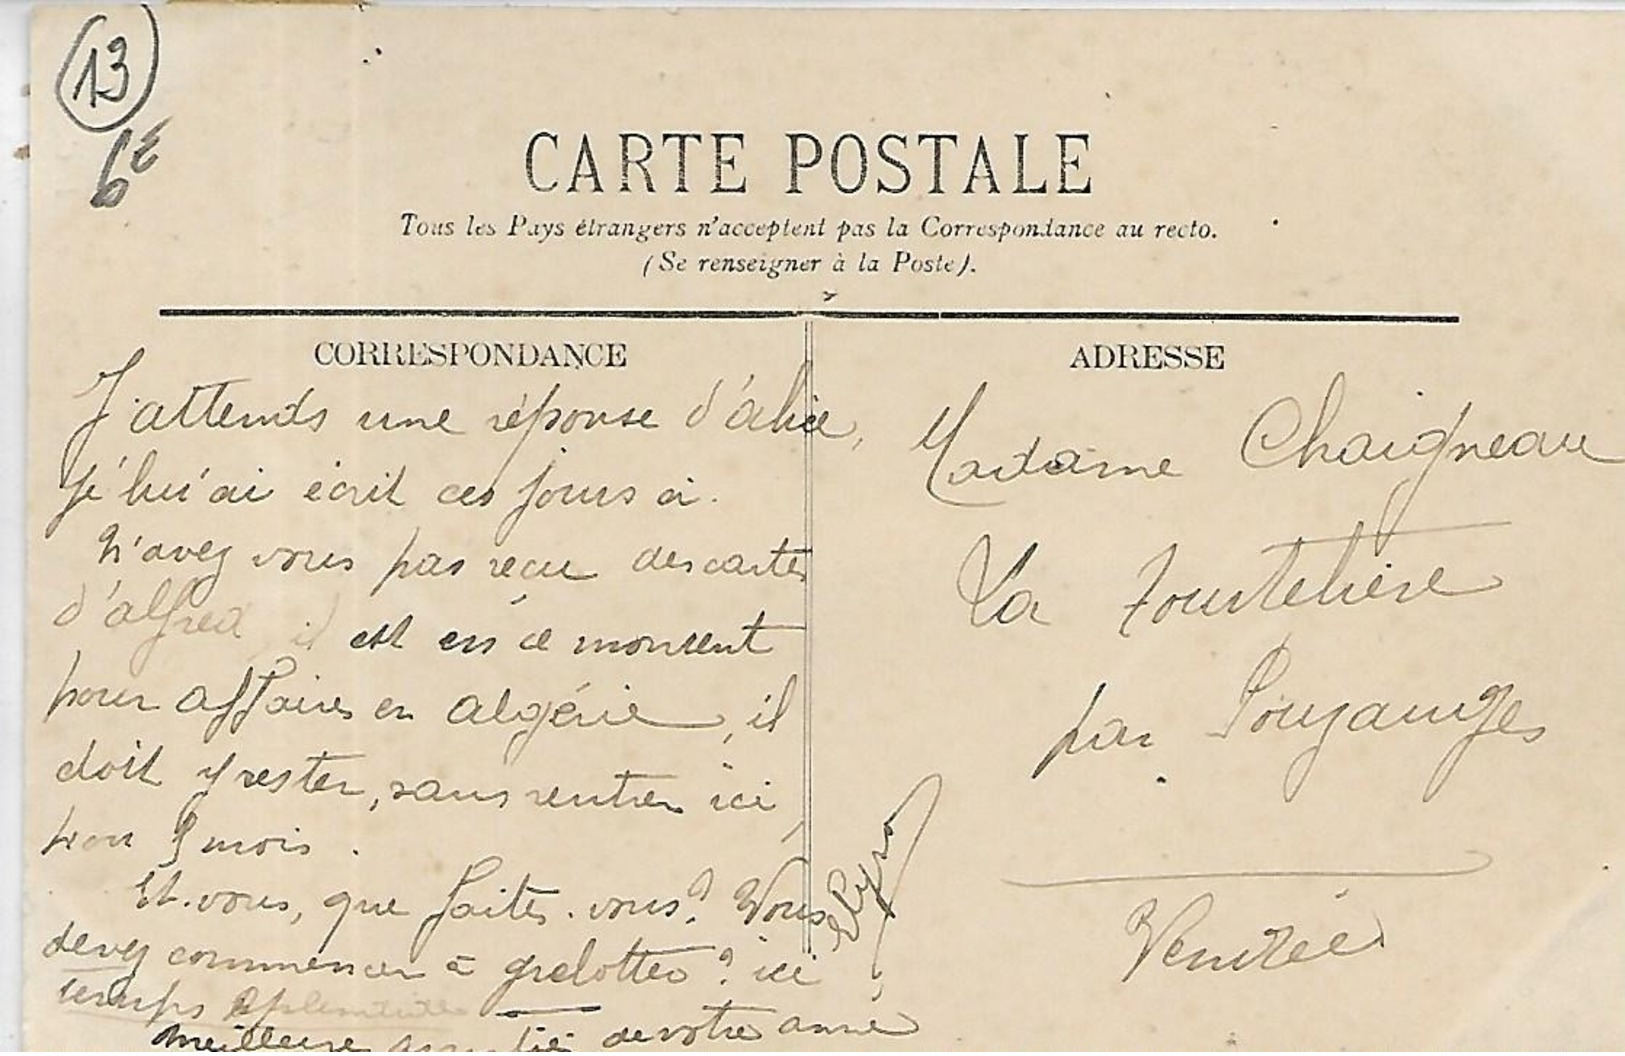 13
6€
CARTE POSTALE
Tous les Pays étrangers n'acceptent pas la Correspondance au recto.
(Se renseigner à la Poste).
CORRESPONDANCE
J'attends une réponse d'alice,
je lui ai écrit ces jours ci.
N'avez vous pas reçu des cartes
d'alfred il est en ce moment
pour affaires en algérie, il
doit y rester, sans rentrer ici,
3 mois.
Et vous, que faites-vous? Vous
devez commencer à grelotter? ici
temps splendide
Meilleures amitiés de votre amie
ADRESSE
Madame Chaigneau
La Tourtelière
par Pouzauges
Vendée